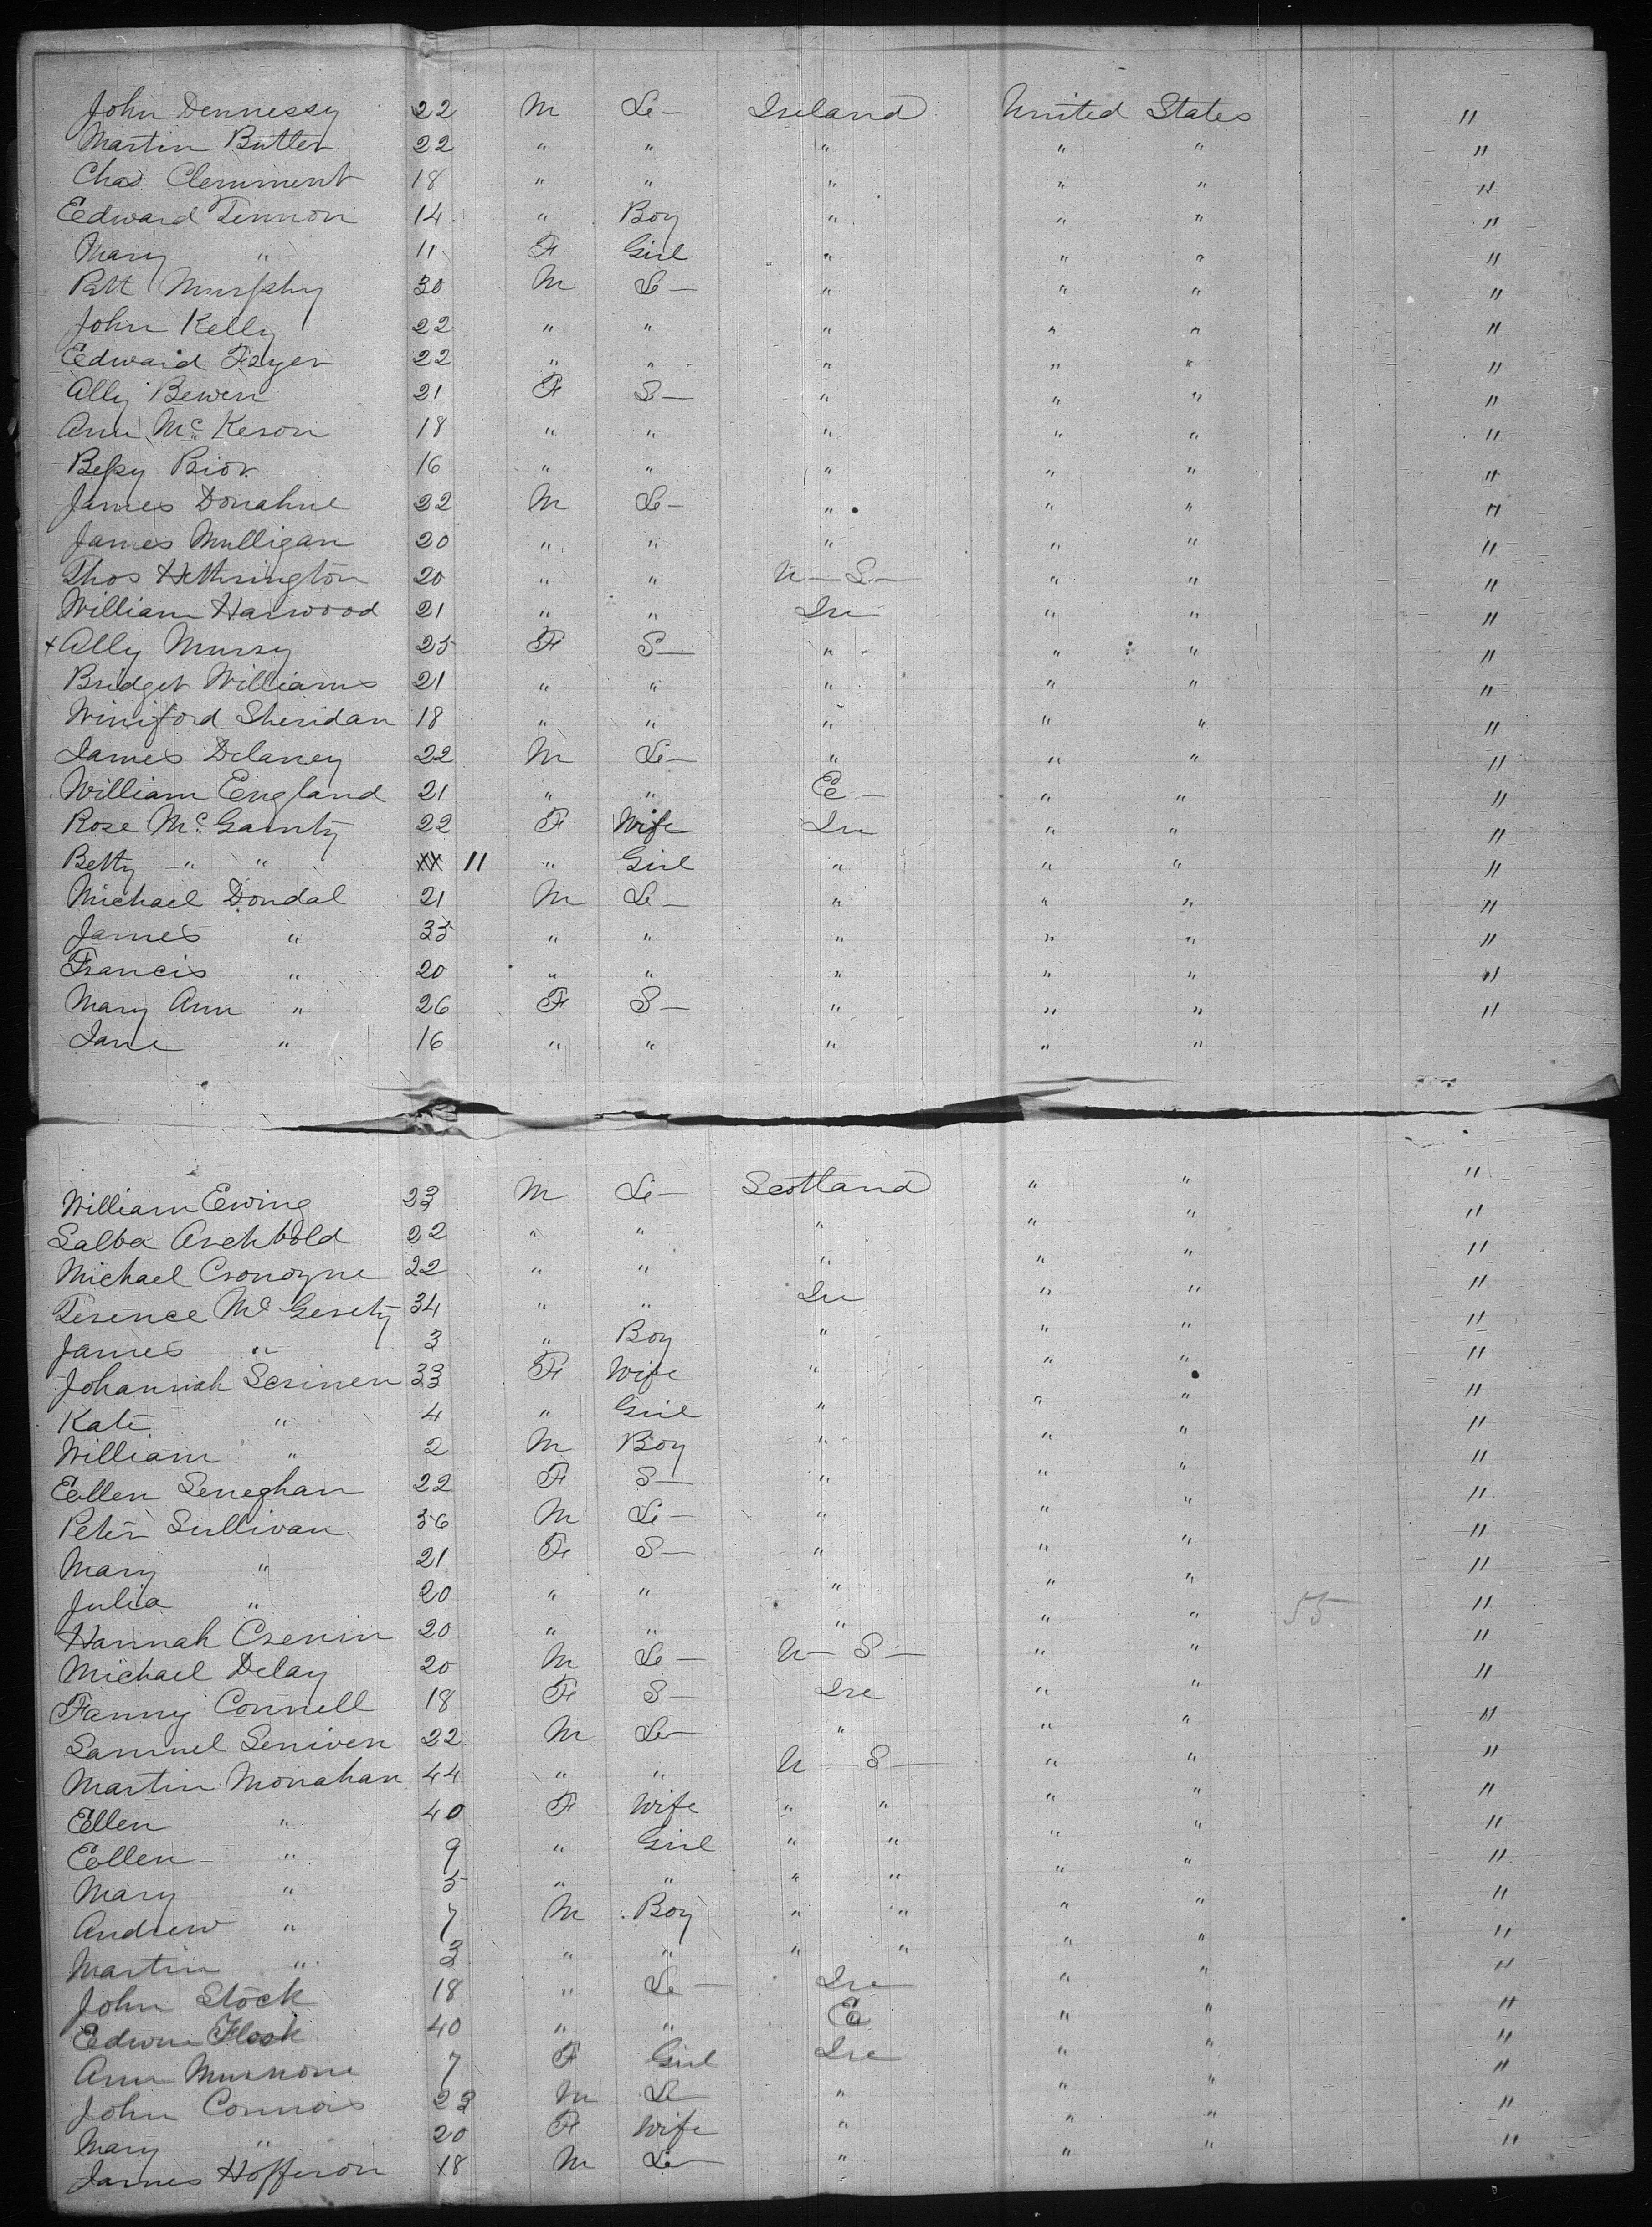 John Dennessy 22 M La— Ireland United States "
Martin Butler 22 " " " " " "
Chas Clemment 18 " " " " " "
Edward Tennon 14 " Boy " " " "
Mary " 11 F Girl " " " "
Patt Murphy 30 M La— " " " "
John Kelly 22 " " " " " "
Edward Fryer 22 " " " " " "
Ally Bewen 21 F S— " " " "
Ann McKeson 18 " " " " " "
Bessy Bior 16 " " " " " "
James Donahue 22 M La— " " " "
James Mulligan 20 " " " " " "
Thos Hethrington 20 " " U—S— " " "
William Harwood 21 " " Ire " " "
x Ally Mursy 25 F S— " " " "
Bridget Williams 21 " " " " " "
Winiford Sheridan 18 " " " " " "
James Delaney 22 M La— " " " "
William England 21 " " E— " " "
Rose Mc Garnty 22 F Wife Ire " " "
Betty " " 11 " Girl " " " "
Michael Dondal 21 M La— " " " "
James " 35 " " " " " "
Francis " 20 " " " " " "
Mary Ann " 26 F S— " " " "
Jane " 16 " " " " "
William Ewing 23 M La— Scotland " " "
Salba Archbold 22 " " " " " "
Michael Cronoyne 22 " " " " " "
Terence Mc Gerety 34 " " Ire " " "
James " 3 " Boy " " " "
Johannah Scrinen 33 F Wife " " " "
Kate " 4 " Girl " " " "
William " 2 M Boy " " " "
Ellen Leneghan 22 F S— " " " "
Peter Sullivan 36 M La— " " " "
Mary " 21 F S— " " " "
Julia " 20 " " " " " 55 "
Hannah Crenin 20 " " " " " "
Michael Delay 20 M La— U—S— " " "
Fanny Connell 18 F S— Ire " " "
Samuel Seniven 22 M La— " " " "
Martin Monahan 44 " " U—S— " " "
Ellen " 40 F Wife " " " " "
Ellen " 9 " Girl " " " " "
Mary " 5 " " " " " " "
Andrew " 7 M Boy " " " " "
Martin " 3 " " " " " " "
John Stock 18 " La— Ire " " "
Edwin Flook 40 " " E " " "
Ann Murnone 7 F Girl Ire " " "
John Connors 23 M La— " " " "
Mary " 20 F Wife " " " "
James Hofferon 18 M La— " " " "